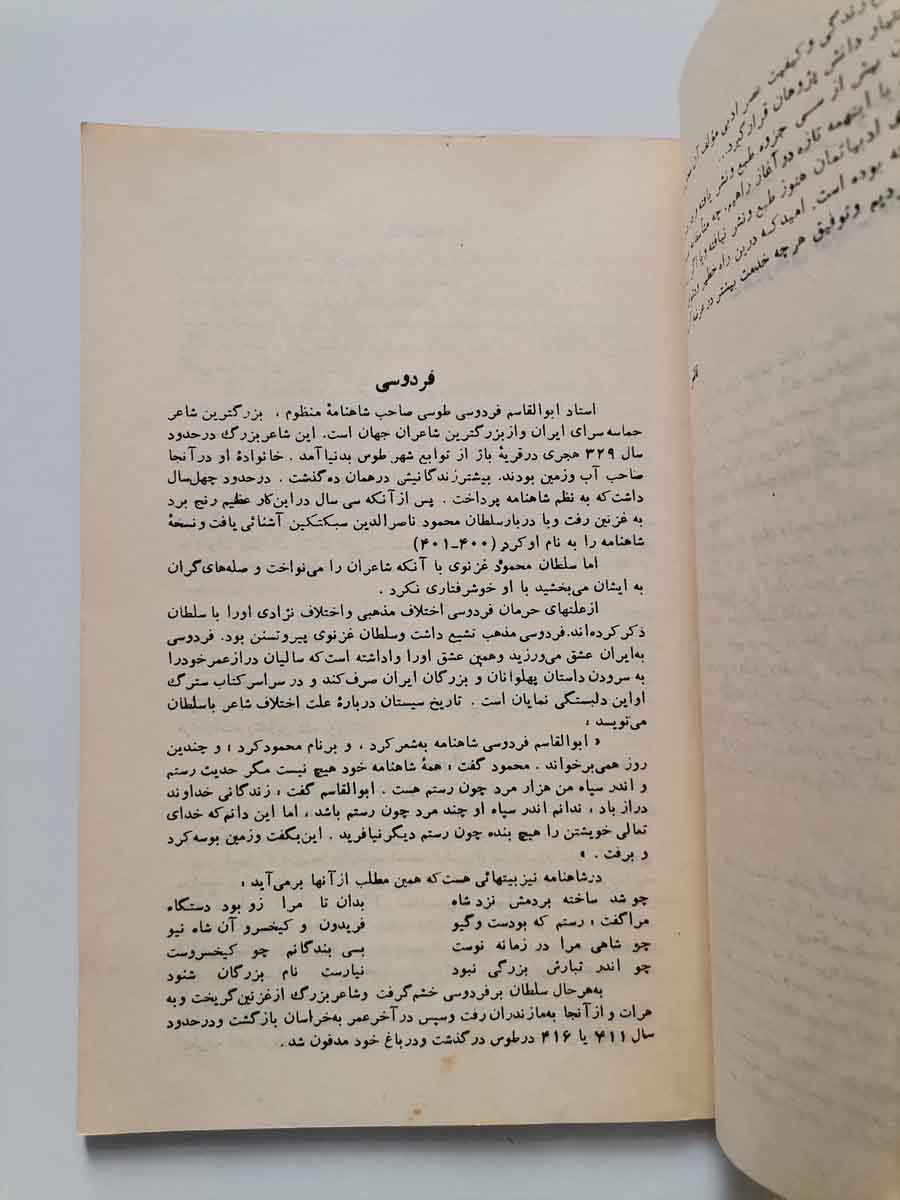 ع زندگی و کیفیت عصر ادبی مؤلف آن
دانش پژوهان قرار گیرد...
بیش از سی جزوه طبع ونشر یافته
با اینهمه تازه در آغاز راهیم، چه
ادبیاتمان هنوز طبع ونشر نیافته ویا اگر
بوده است. امیدکه درین راه خطیر
دیم وتوفیق هرچه خدمت بیشتر در
فردوسی
استاد ابوالقاسم فردوسی طوسی صاحب شاهنامهٔ منظوم ، بزرگترین شاعر
حماسه سرای ایران وازبزرگترین شاعران جهان است. این شاعربزرگ درحدود
سال ۳۲۹ هجری درقریهٔ باژ از توابع شهر طوس بدنیاآمد . خانوادهٔ او درآنجا
صاحب آب وزمین بودند. بیشترزندگانیش درهمان ده‌گذشت . درحدود چهل‌سال
داشت‌که به نظم شاهنامه پرداخت . پس ازآنکه سی سال دراین‌کار عظیم رنج برد
به غزنین رفت وبا دربارسلطان محمود ناصرالدین سبکتکین آشنائی یافت ونسخهٔ
شاهنامه را به نام اوکرد (۴۰۰-۴۰۱)
اما سلطان محمود غزنوی با آنکه شاعران را می‌نواخت و صله‌های‌گران
به ایشان می‌بخشید با او خوشرفتاری نکرد .
ازعلتهای حرمان فردوسی اختلاف مذهبی واختلاف نژادی اورا با سلطان
ذکرکرده‌اند.فردوسی مذهب تشیع داشت وسلطان غزنوی پیروتسنن بود. فردوسی
به‌ایران عشق می‌ورزید وهمین عشق اورا واداشته است‌که سالیان درازعمرخودرا
به سرودن داستان پهلوانان و بزرگان ایران صرف‌کند و در سراسر کتاب سترگ
اواین دلبستگی نمایان است . تاریخ سیستان دربارهٔ علت اختلاف شاعر باسلطان
می‌نویسد:
« ابوالقاسم فردوسی شاهنامه به‌شعرکرد ، و برنام محمودکرد ؛ و چندین
روز همی‌برخواند . محمود گفت : همهٔ شاهنامه خود هیچ نیست مگر حدیث رستم
و اندر سپاه من هزار مرد چون رستم هست . ابوالقاسم گفت : زندگانی خداوند
دراز باد ، ندانم اندر سپاه او چند مرد چون رستم باشد ، اما این دانم‌که خدای
تعالی خویشتن را هیچ بنده چون رستم دیگرنیافرید . این‌بگفت وزمین بوسه‌کرد
و برفت . »
درشاهنامه نیزبیتهائی هست‌که همین مطلب ازآنها برمی‌آید :
چو شد ساخته بردمش نزد شاه بدان تا مرا زو بود دستگاه
مراگفت : رستم که بودست وگیو فریدون و کیخسرو آن شاه نیو
چو شاهی مرا در زمانه نوست بسی بندگانم چو کیخسروست
چو اندر تبارش بزرگی نبود نیارست نام بزرگان شنود
به‌هرحال سلطان برفردوسی خشم‌گرفت وشاعربزرگ ازغزنین‌گریخت وبه
هرات و ازآنجا به‌مازندران رفت وسپس درآخرعمر به‌خراسان بازگشت ودرحدود
سال ۴۱۱ یا ۴۱۶ درطوس درگذشت ودرباغ خود مدفون شد .